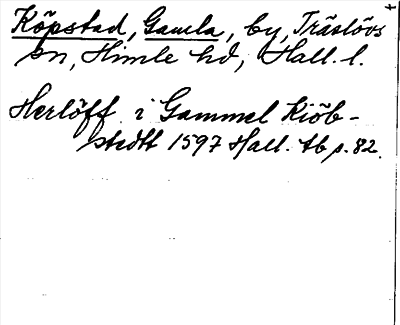 Köpstad, Gamla, by, Träslövs
sn, Himle hd, Hall. l.
Herlöff i Gammel Kiöb-
stedtt 1597 Hall. tb p. 82.